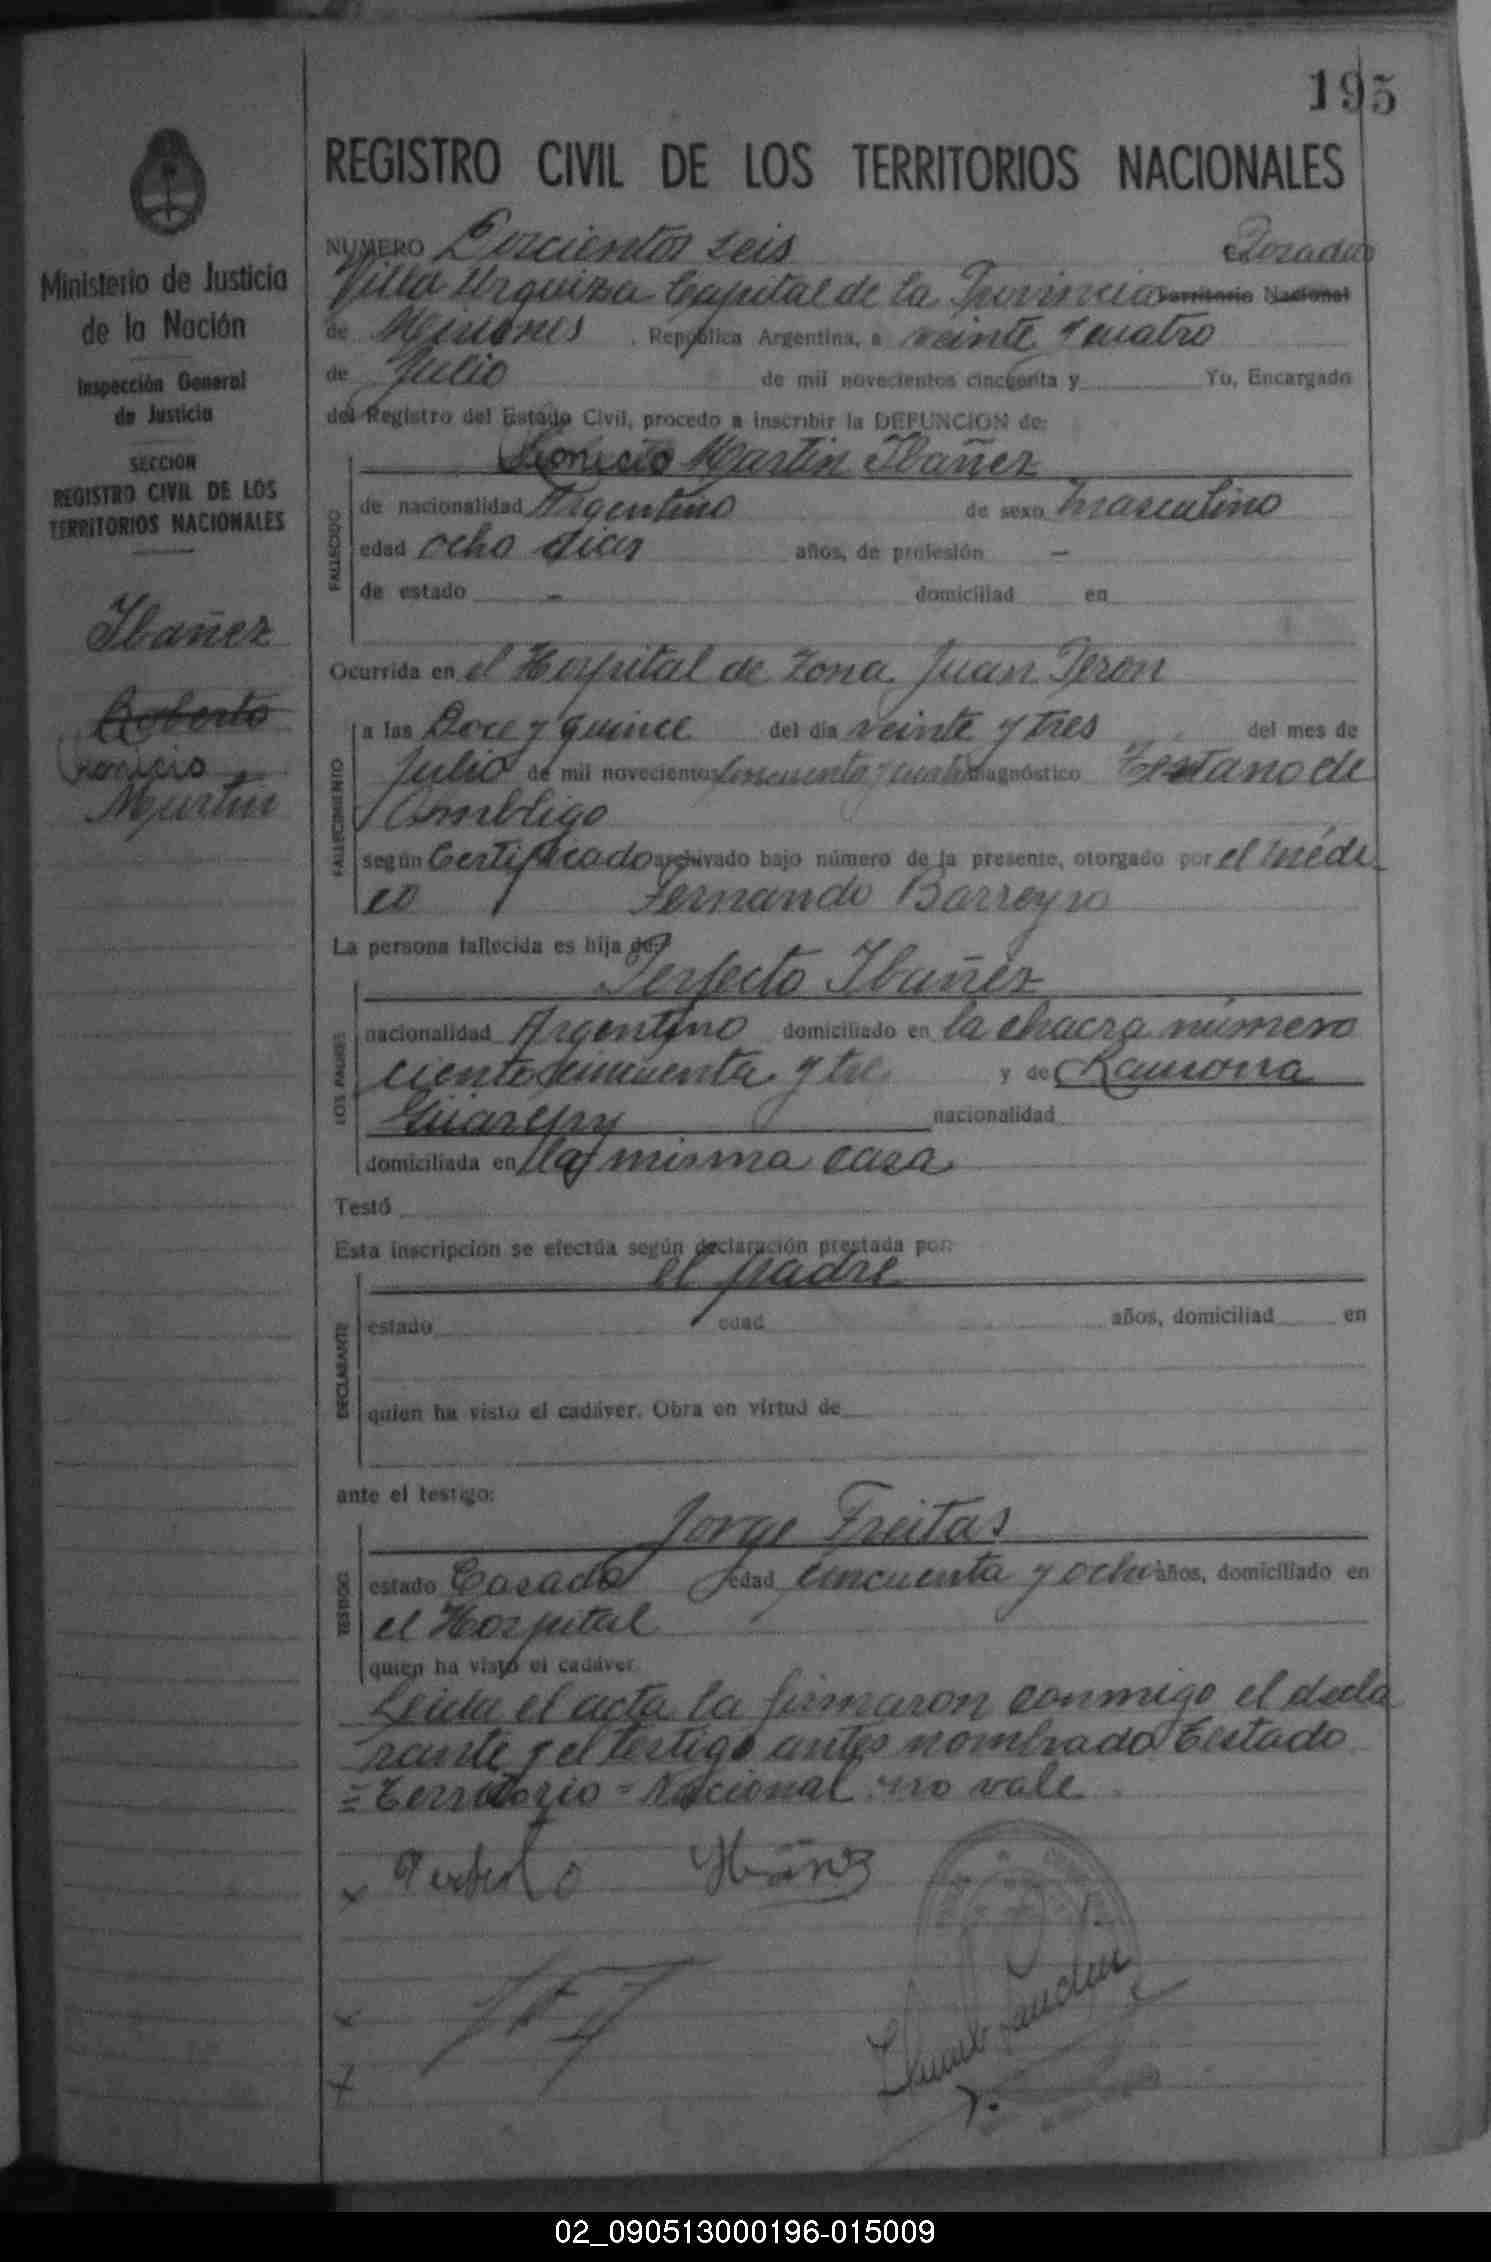 195
REGISTRO CIVIL DE LOS TERRITORIOS NACIONALES
Ministerio de Justicia
de la Nación
Inspección General
de Justicia
SECCION
REGISTRO CIVIL DE LOS
TERRITORIOS NACIONALES
Ibañez
Roberto
Martin
NUMERO Doscientos seis Posadas
Villa Urquiza Capital de la Provincia Territorio Nacional
de Misiones, República Argentina, a veinte y cuatro
de Julio de mil novecientos cincuenta y Yo, Encargado
del Registro del Estado Civil, procedo a inscribir la DEFUNCION de:
Martin Ibañez
FALLECIDO
de nacionalidad Argentino de sexo masculino
edad ocho dias años, de profesión —
de estado — domiciliad en
Ocurrida en el Hospital de Zona Juan Peron
FALLECIMIENTO
a las Doce y quince del día veinte y tres del mes de
Julio de mil novecientos cincuenta y cuatro diagnóstico Tétano de
Ombligo
según Certificado archivado bajo número de la presente, otorgado por el médi
co Fernando Barreyro
La persona fallecida es hija de:
LOS PADRES
Perfecto Ibañez
nacionalidad Argentino domiciliado en la chacra número
ciento cincuenta y tres y de Ramona
nacionalidad
domiciliada en la misma casa
Testó
Esta inscripción se efectúa según declaración prestada por:
DECLARANTE
el padre
estado edad años, domiciliad en
quien ha visto el cadáver. Obra en virtud de
ante el testigo:
TESTIGO
Jorge Freitas
estado Casado edad cincuenta y ocho años, domiciliado en
el Hospital
quien ha visto el cadáver.
Leida el acta la firmaron conmigo el decla
rante y el testigo antes nombrado Testado
= Territorio = Nacional: no vale
x Perfecto Ibáñez
x
x
02_090513000196-015009